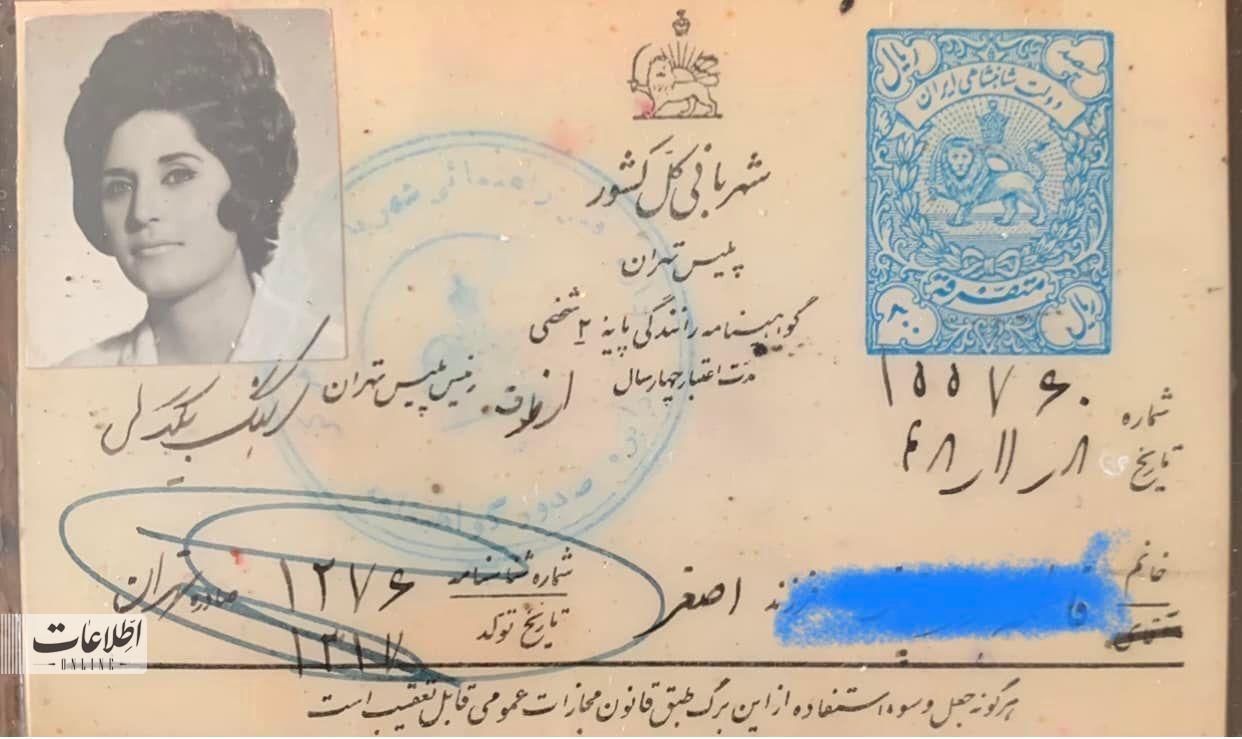 شهربانی کل کشور
پلیس تهران
گواهینامه رانندگی پایه ۲ شخصی
مدت اعتبار چهار سال
از طرف رئیس پلیس تهران
سرهنگ بیگدلی
ریال
یکصد
دولت شاهنشاهی ایران
متفرقه
۸۰۰
ریال
شماره ۱۵۵۷۶۰
تاریخ ۴۸/۱۱/۸
خانم
فرزند اصغر
شماره شناسنامه ۱۲۷۶ صادره تهران
تاریخ تولد ۱۳۱۷
هرگونه جعل و سوء استفاده از این برگ طبق قانون مجازات عمومی قابل تعقیب است
صدور گواهینامه
اطلاعات
ONLINE